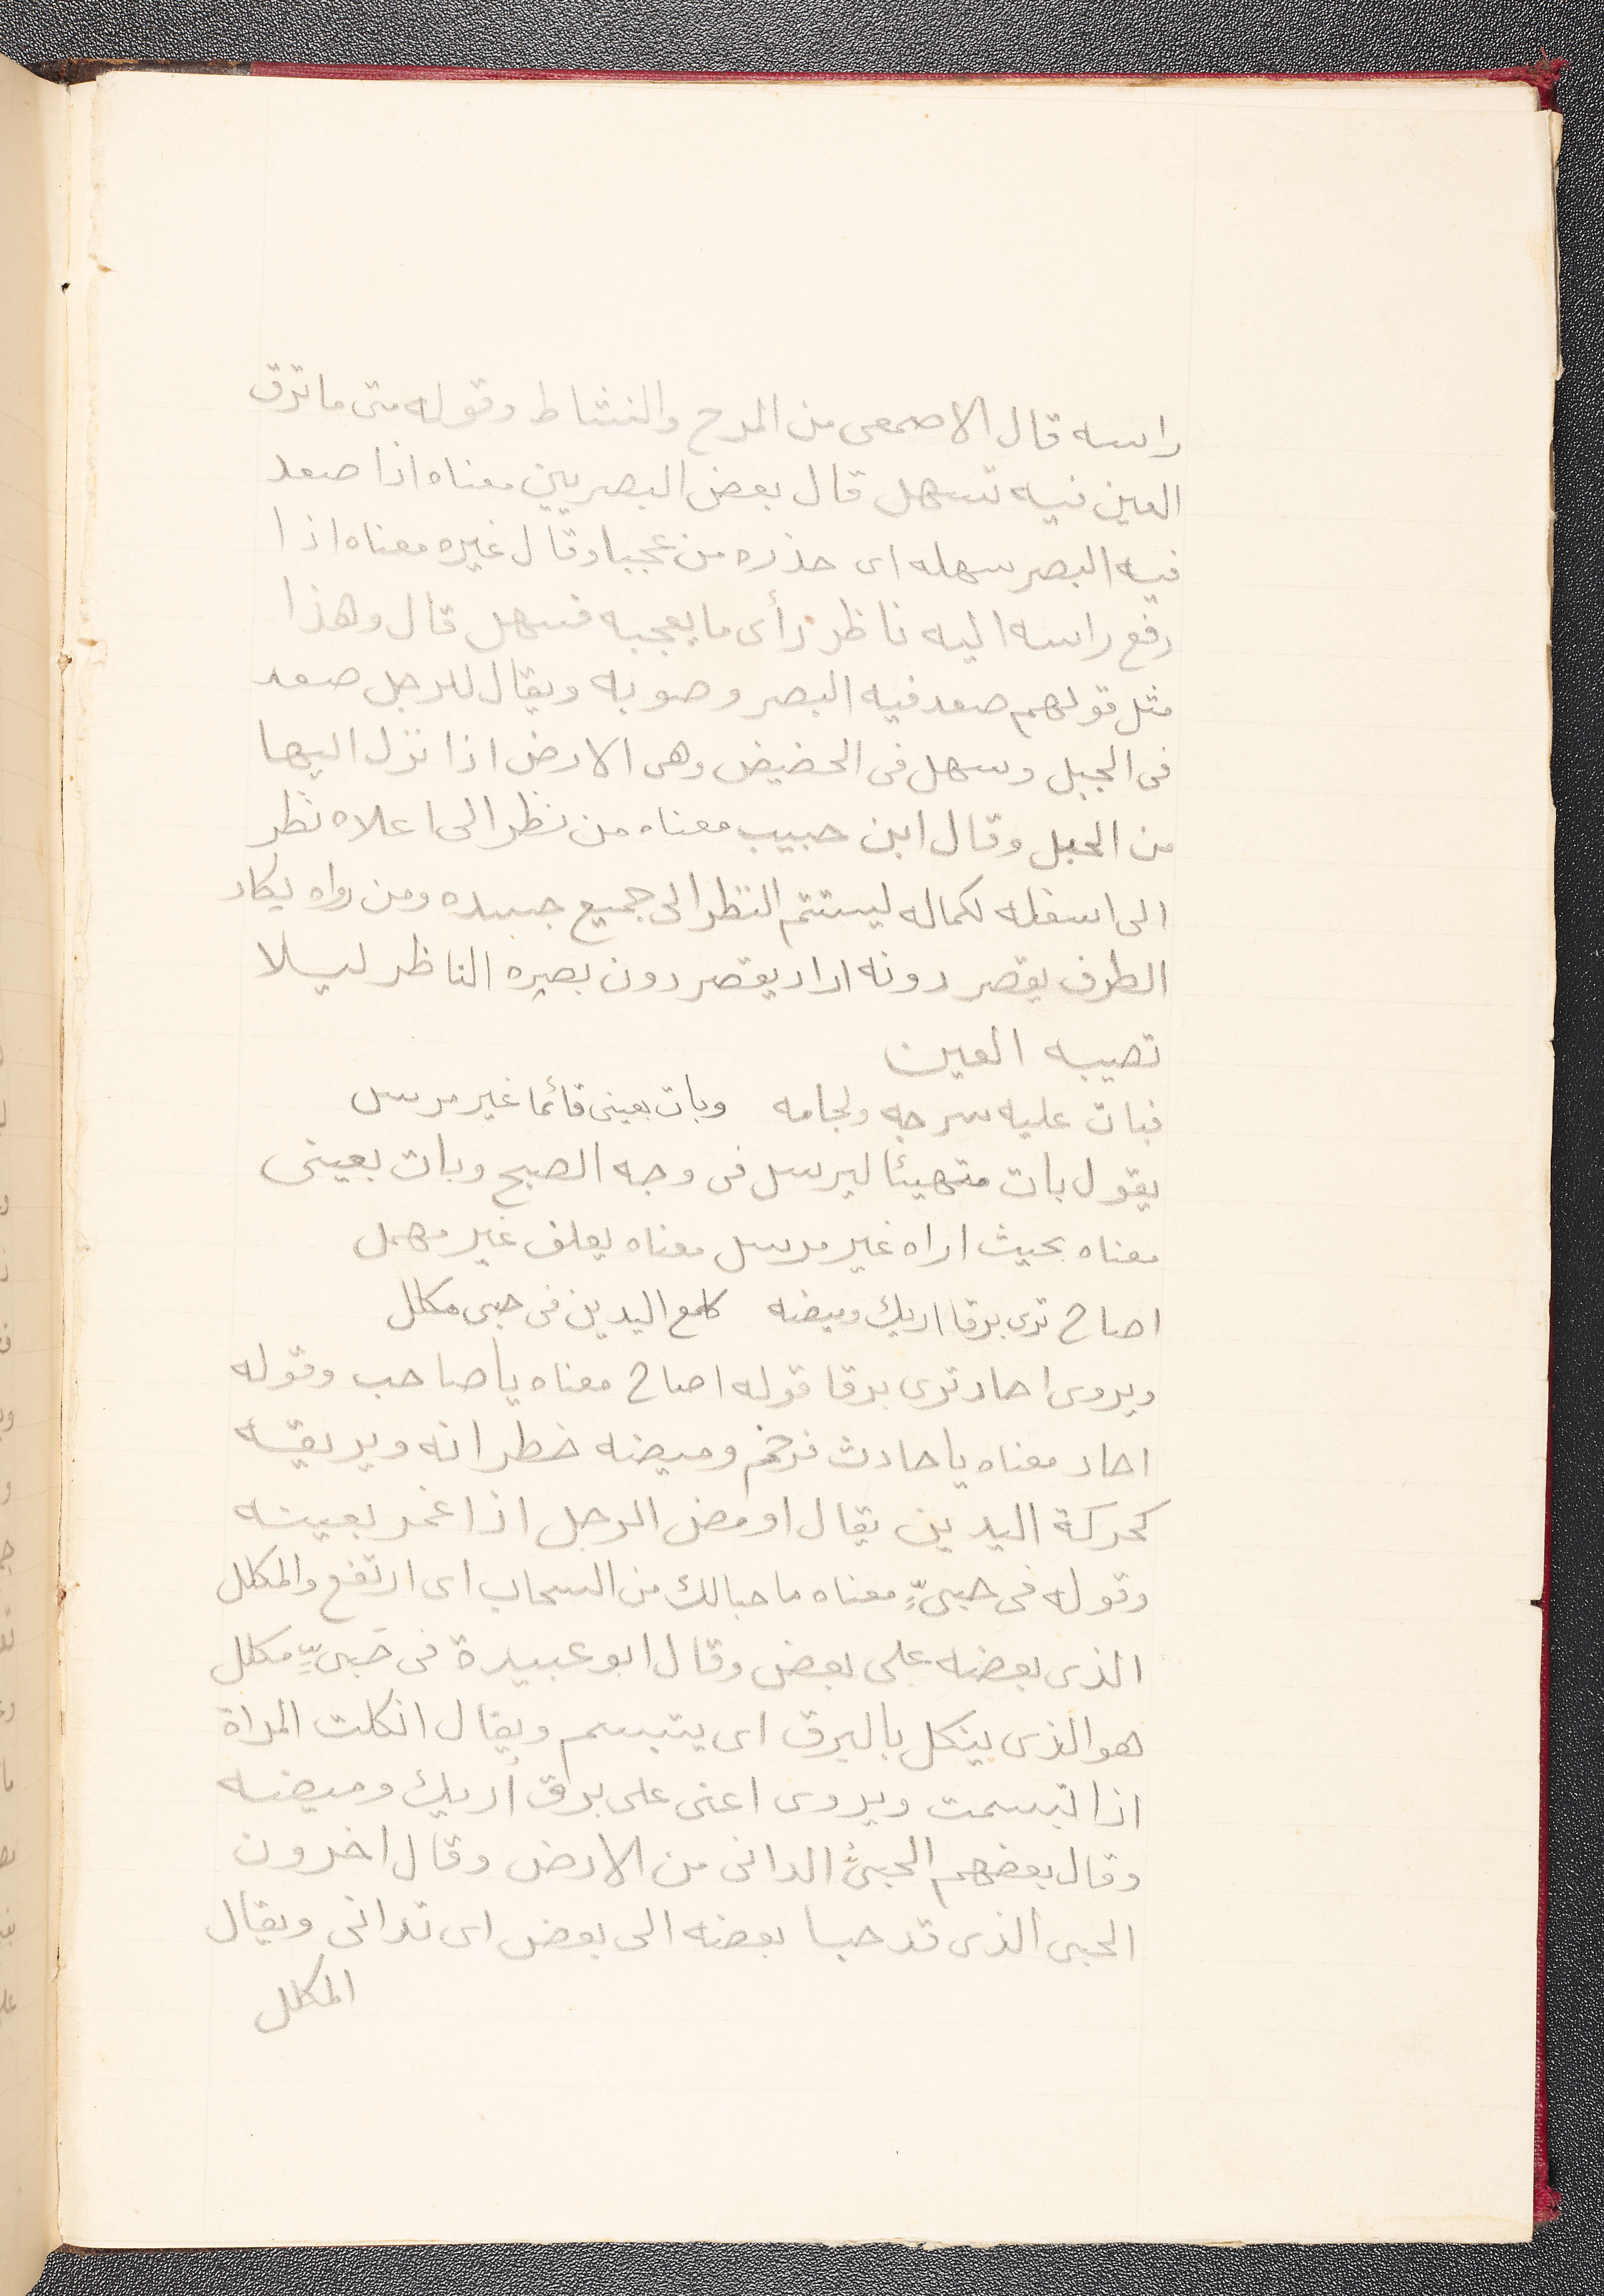 راسه قال الاصمعى من المرح والنشاط وقوله متى ما ترق
العين فيه تسهل قال بعض البصريين معناه اذا صعد
فيه البصر سهله اى حذره من عجبا وقال غيره معناه اذا
رفع راسه اليه ناظر رأى ما يعجبه فسهل قال وهذا
مثل قولهم صعد فيه البصر وصوبه ويقال للرجل صعد
فى الجبل وسهل فى الحضيض وهى الارض اذا نزل اليها
من الجبل وقال ابن حبيب معناه من نظر الى اعلاه نظر
الى اسفله لكماله ليستتم النظر الى جميع جسده ومن رواه يكاد
الطرف يقصر دونه اراد يقصر دون بصره الناظر ليلا
تصيبه العين
فبات عليه سرجه ولجامه وبات بعينى قائما غير مرسل
يقول بات متهيئا ليرسل فى وجه الصبح وبات بعينى
معناه بحيث اراه غير مرسل معناه يعلف غير مهمل
اصاح ترى برقا اريك وميضه كلمع اليدين فى حبى مكلل
ويروى احار ترى برقا قوله اصاح معناه يا صاحب وقوله
احار معناه يا حارث فرخم وميضه خطرانه وبريقه
كحركة اليدين يقال اومض الرجل اذا غمز بعينه
وقوله فى حبىٍّ معناه ما حبا لك من السحاب اى ارتفع والمكلل
الذى بعضه على بعض وقال ابو عبيدة فى حَبىٍّ مكلل
هو الذى ينكل بالبرق اى يتبسم ويقال انكلت المراة
اذا تبسمت ويروى اعنى على برق أريك وميضه
وقال بعضهم الحبىُّ الدانى من الارض وقال اخرون
الحبى الذى قد حبا بعضه الى بعض اى تدانى ويقال
المكلل